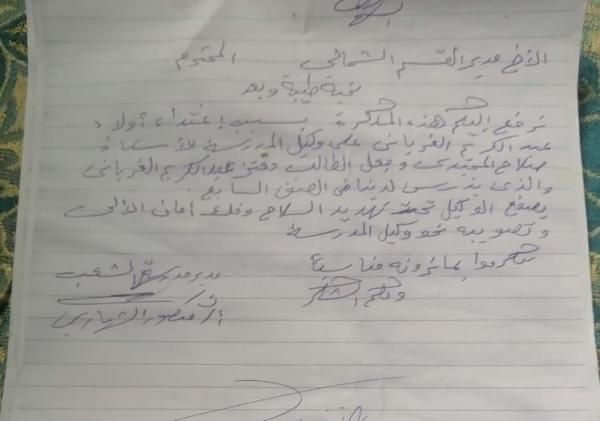 الأخ مدير القسم الشمالي المحترم
تحية طيبة وبعد
نرفع إليكم هذه المذكرة بسبب إعتداء أولاد
عبد الكريم الغرباني على وكيل المدرسة الأستاذ
صلاح وجعل الطالب عبد الكريم الغرباني
والذي يدرس لدينا في الصف السابع
يصفع الوكيل تحت تهديد السلاح وفك أمان الآلي
وتصويبه نحو وكيل المدرسة
تكرموا بما ترونه مناسباً
ولكم الشكر
مدير مدرسة الشعب
أ/ منصور